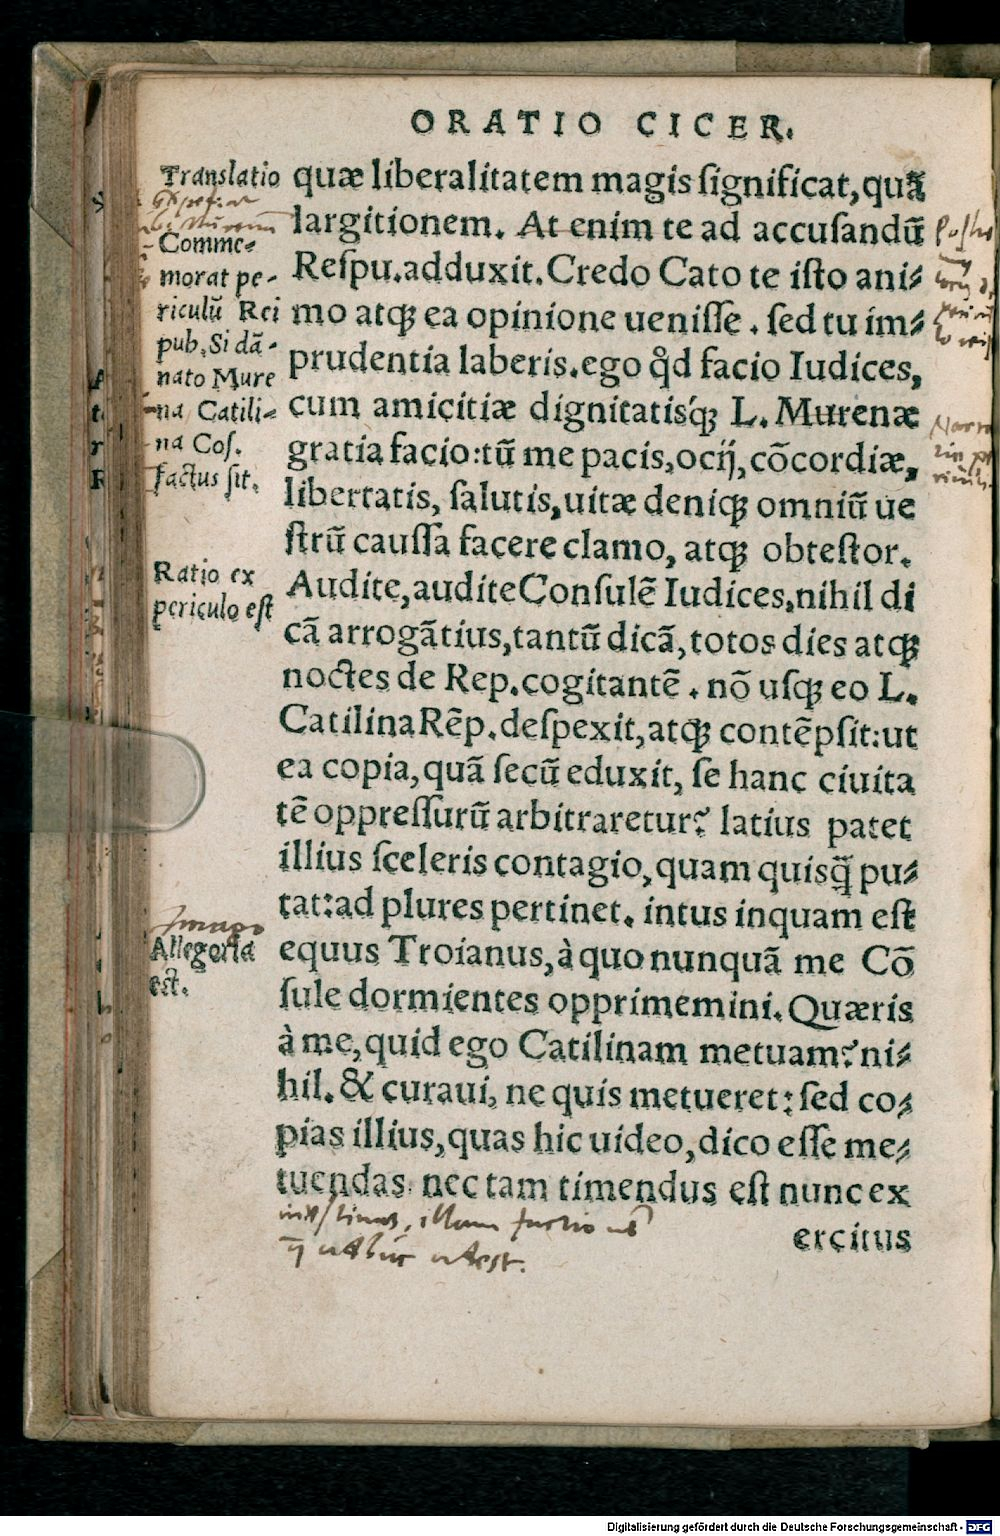 ORATIO CICER.
quæ liberalitatem magis ſignificat, quã
largitionem. At enim te ad accuſandũ
Reſpu. adduxit. Credo Cato te iſto ani-
mo atq; ea opinione ueniſſe. ſed tu im-
prudentia laberis. ego qd̛ facio Iudices,
cum amicitiæ dignitatisq́; L. Murenæ
gratia facio: tũ me pacis, ocij, cõcordiæ,
libertatis, ſalutis, uitæ deniq; omniũ ue
ſtrũ cauſſa facere clamo, atq; obteſtor.
Audite, audite Conſulẽ Iudices, nihil di
cã arrogãtius, tantũ dicã, totos dies atq;
noctes de Rep. cogitantẽ. nõ uſq; eo L.
Catilina Rẽp. deſpexit, atq; contẽpſit: ut
ea copia, quã ſecũ eduxit, ſe hanc ciuita
tẽ oppreſſurũ arbitraretur? latius patet
illius ſceleris contagio, quam quisq̃ pu-
tat: ad plures pertinet. intus inquam eſt
equus Troianus, à quo nunquã me Cõ
ſule dormientes opprimemini. Quæris
à me, quid ego Catilinam metuam? ni-
hil. & curaui, ne quis metueret: ſed co-
pias illius, quas hic uideo, dico eſſe me-
tuendas. nec tam timendus eſt nunc ex
ercitus
Translatio
Comme-
morat pe-
riculũ Rei
pub. Si dã-
nato Mure
na Catili-
na Coſ.
factus ſit.
Ratio ex
periculo eſt
Imago
Allegoria
eſt.
Digitalisierung gefördert durch die Deutsche Forschungsgemeinschaft - DFG